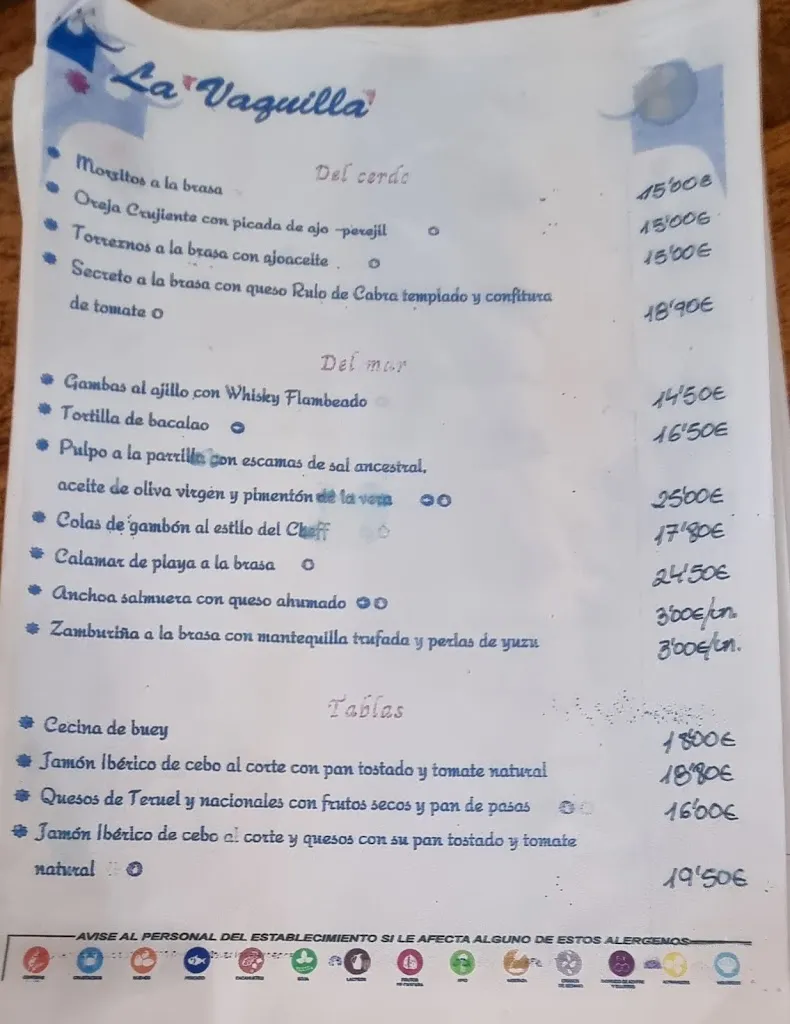 La Vaquilla
Del cerdo
Morritos a la brasa 15'00€
Oreja Crujiente con picada de ajo -perejil 15'00€
Torreznos a la brasa con ajoaceite . 15'00€
Secreto a la brasa con queso Rulo de Cabra templado y confitura
de tomate 18'90€
Del mar
Gambas al ajillo con Whisky Flambeado 14'50€
Tortilla de bacalao 16'50€
Pulpo a la parrilla con escamas de sal ancestral,
aceite de oliva virgen y pimentón de la vera 25'00€
Colas de gambón al estilo del Cheff 17'80€
Calamar de playa a la brasa 24'50€
Anchoa salmuera con queso ahumado 3'00€/un.
Zamburiña a la brasa con mantequilla trufada y perlas de yuzu 3'00€/un.
Tablas
Cecina de buey 18'00€
Jamón Ibérico de cebo al corte con pan tostado y tomate natural 18'80€
Quesos de Teruel y nacionales con frutos secos y pan de pasas 16'00€
Jamón Ibérico de cebo al corte y quesos con su pan tostado y tomate
natural 19'50€
AVISE AL PERSONAL DEL ESTABLECIMIENTO SI LE AFECTA ALGUNO DE ESTOS ALERGENOS